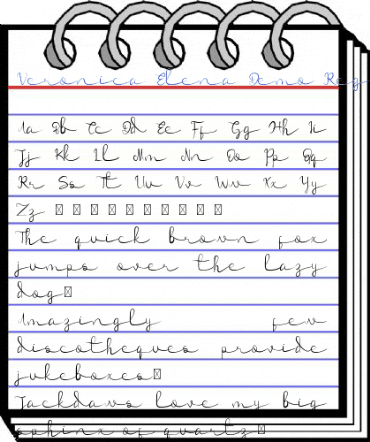 Veronica Elena Demo Reg
Aa Bb Cc Dd Ee Ff Gg Hh Ii
Jj Kk Ll Mm Nn Oo Pp Qq
Rr Ss Tt Uu Vv Ww Xx Yy
Zz
The quick brown fox
jumps over the lazy
dog
Amazingly few
discotheques provide
jukeboxes
Jackdaws love my big
sphinx of quartz